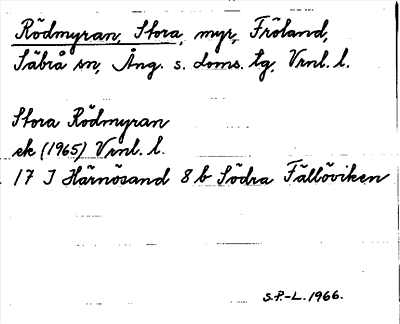 Rödmyran, Stora, myr, Fröland,
Säbrå sn, Ång. s. doms. tg, Vrnl. l.
Stora Rödmyran
ek (1965) Vrnl. l.
17 I Härnösand 8 b Södra Fällöviken
S.P.-L. 1966.